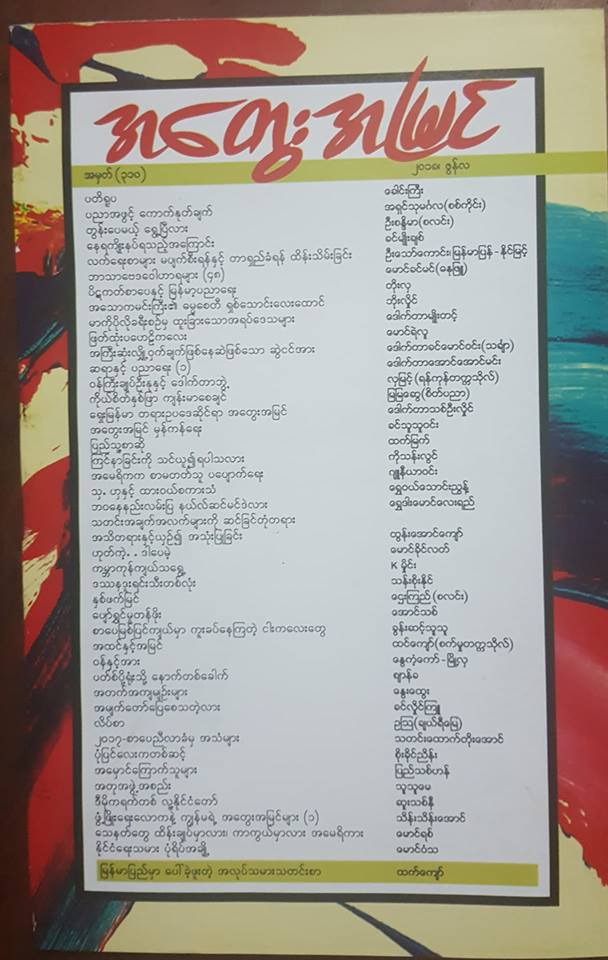 အတွေးအမြင်
အမှတ် (၃၁၀) ၂၀၁၈၊ ဇွန်လ
ပတိရူပ ခေါင်းကြီး
ပညာအဖွင့် ကောက်နုတ်ချက် အရှင်သုမင်္ဂလ(စစ်ကိုင်း)
တွန်းပေမယ့် ရွှေ့ပြီလား ဦးစန္ဒိမာ(စလင်း)
နေရကျိုးနပ်ရသည့်အကြောင်း ခင်မျိုးချစ်
လက်ရေးစာများ မပျက်စီးရန်နှင့် တာရှည်ခံရန် ထိန်းသိမ်းခြင်း ဦးသော်ကောင်း၊ မြန်မာပြန် - နိုင်မြင့်
ဘာသာဗေဒဝေါဟာရများ (၄၈) မောင်ခင်မင်(ဓနုဖြူ)
ပိဋကတ်စာပေနှင့် မြန်မာ့ပညာရေး တိုးလှ
အသောကမင်းကြီး၏ မွေစေတီ ရှစ်သောင်းလေးထောင် ဘိုးလှိုင်
မာကိုပိုလိုခရီးစဉ်မှ ထူးခြားသောအရပ်ဒေသများ ဒေါက်တာမျိုးတင့်
ဖြတ်ထုံးပဟေဠိကလေး မောင်ရဲလူ
အကြီးဆုံးလျှို့ဝှက်ချက်ဖြစ်နေဆဲဖြစ်သော ဆွဲငင်အား ဒေါက်တာခင်မောင်ဝင်း(သင်္ချာ)
ဆရာနှင့် ပညာရေး (၁) ဒေါက်တာအောင်အောင်မင်း
ဝန်ကြီးချုပ်ဦးနုနှင့် ဒေါက်တာဘွဲ့ လှမြင့်(ရန်ကုန်တက္ကသိုလ်)
ကိုယ်စိတ်နှစ်ဖြာ ကျန်းမာစေချင် မြမြဆွေ(စိတ်ပညာ)
ရှေးမြန်မာ တရားဥပဒေဆိုင်ရာ အတွေးအမြင် ဒေါက်တာသစ်ဦးလှိုင်
အတွေးအမြင် မှန်ကန်ရေး ခင်သူသူဝင်း
ပြည်သူ့စာဆို ထက်မြက်
ကြင်နာခြင်းကို သင်ယူ၍ရပါသလား ကိုသန်းလွင်
အမေရိကက စာမတတ်သူ ပပျောက်ရေး ဂျူနီယာဝင်း
သူ၊ ဟုနှင့် ထားဝယ်စကားသံ ရွှေဝယ်သောင်းညွန့်
ဘဝနေနည်းလမ်းပြ နယ်လ်ဆင်မင်ဒဲလား ရွှေဒါးမောင်လေးရည်
သတင်းအချက်အလက်များကို ဆင်ခြင်တုံတရား
အသိတရားနှင့်ယှဉ်၍ အသုံးပြုခြင်း ထွန်းအောင်ကျော်
ဟုတ်ကဲ့. . ဒါပေမဲ့ မောင်ခိုင်လတ်
ကမ္ဘာကုန်ကျယ်သရွေ့ K မှိုင်း
ဒဿနဒူးရင်းသီးတစ်လုံး သန်းစိုးနိုင်
နှစ်ဖက်မြင် ဌေးကြည် (စလင်း)
ပျော်ရွှင်မှုတန်ဖိုး အောင်သစ်
စာပေမြစ်ပြင်ကျယ်မှာ ကူးခပ်နေကြတဲ့ ငါးကလေးတွေ စွန်းဆင့်သူသူ
အထင်နှင့်အမြင် ထင်ကျော်(စက်မှုတက္ကသိုလ်)
ဝန်နှင့်အား နွေကံ့ကော် - မြို့လှ
ပတ်စ်ပို့ရုံးသို့ နောက်တစ်ခေါက် ဈာန်ခ
အတက်အကျမျဉ်းများ နွေးထွေး
အမျက်တော်ပြေစေသတဲ့လား ခင်လှိုင်ကြူ
လိပ်စာ ဥဩ(ချယ်ရီမြေ)
၂၀၁၇-စာပေညီလာခံမှ အသံများ သတင်းထောက်တိုးအောင်
ပုံပြင်လေးကတစ်ဆင့် စိုးခိုင်ညိန်း
အမှောင်ကြောက်သူများ ပြည်သစ်ဟန်
အတုအဖွဲ့အစည်း သူသူမေ
ဒီမိုကရက်တစ် လူ့နိုင်ငံတော် ဆူးသစ်နီ
ဖွံ့ဖြိုးရေးလောကနဲ့ ကျွန်မရဲ့ အတွေးအမြင်များ (၁) သိန်းသိန်းအောင်
သေနတ်တွေ ထိန်းချုပ်မှာလား၊ ကာကွယ်မှာလား အမေရိကား မောင်ရစ်
နိုင်ငံရေးသမား ပုံရိပ်အချို့ မောင်ဝံသ
မြန်မာပြည်မှာ ပေါ်ခဲ့ဖူးတဲ့ အလုပ်သမားသတင်းစာ ထက်ကျော်